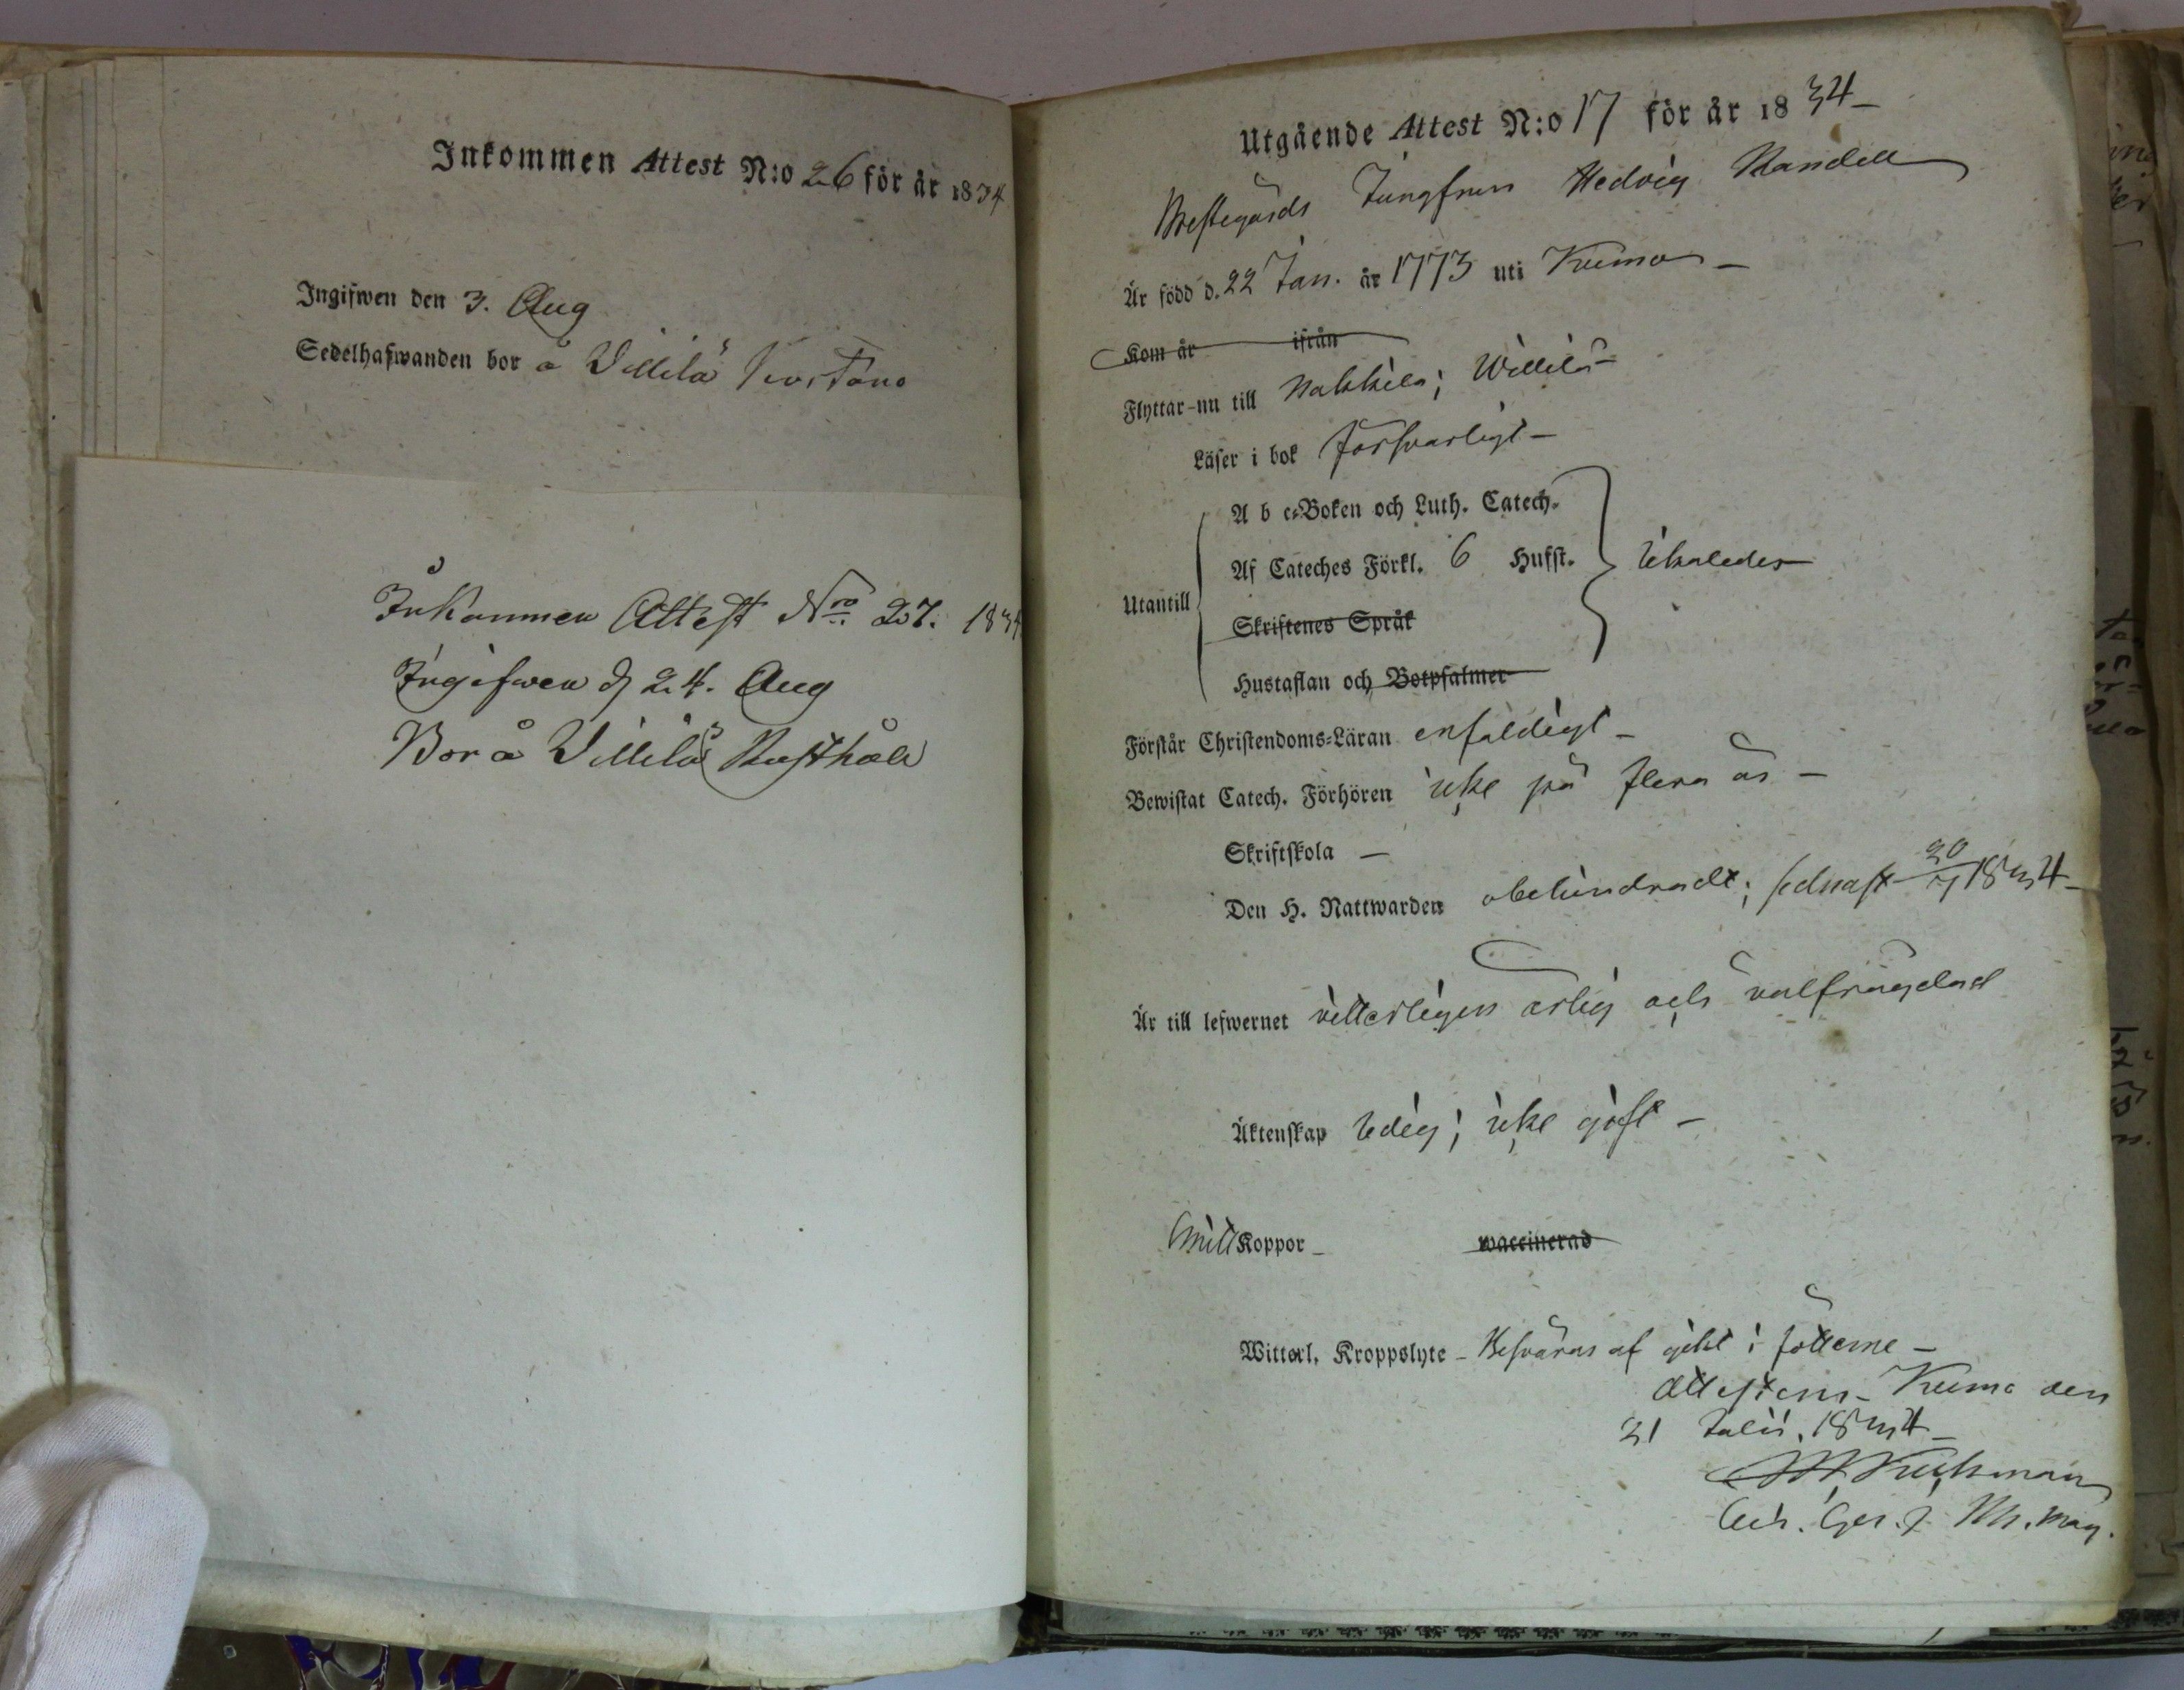 Inkommen Attest N:o 26 för år 1834
Ingifwen den 3. Aug
Sedelhafwanden bor å Villilä
Inkommen Attest Nro 27. 1834
Ingifwen d 24. Aug
Bor å Villilä Rusthåll
Utgående Attest N:o 17 för år 1834
Prestegårds Jungfrun Hedvig Randell
Är född d. 22 Jan. år 1773 uti Kumo
Kom år ifrån
Flyttar nu till Nakkila; Willilä
Läser i bok försvarligt
A b c-Boken och Luth. Catech.
Af Cateches Förkl. 6 Hufst. likaledes
Utantill
Skriftenes Språk
Hustaflan och Botpsalmer
Förstår Christendoms-Läran enfaldigt
Bewistat Catech. Förhören icke på flera år
Skriftskola
Den H. Nattwarden obehindradt; sednast 20/7 1834
Är till lefwernet vitterligen ärlig och välfrägdad
Äktenskap ledig; icke gift
haft Koppor waccinerad
Witterl. Kroppslyte Besväras af gikt i fötterne
Attesteras Kumo den
21 Julii 1834